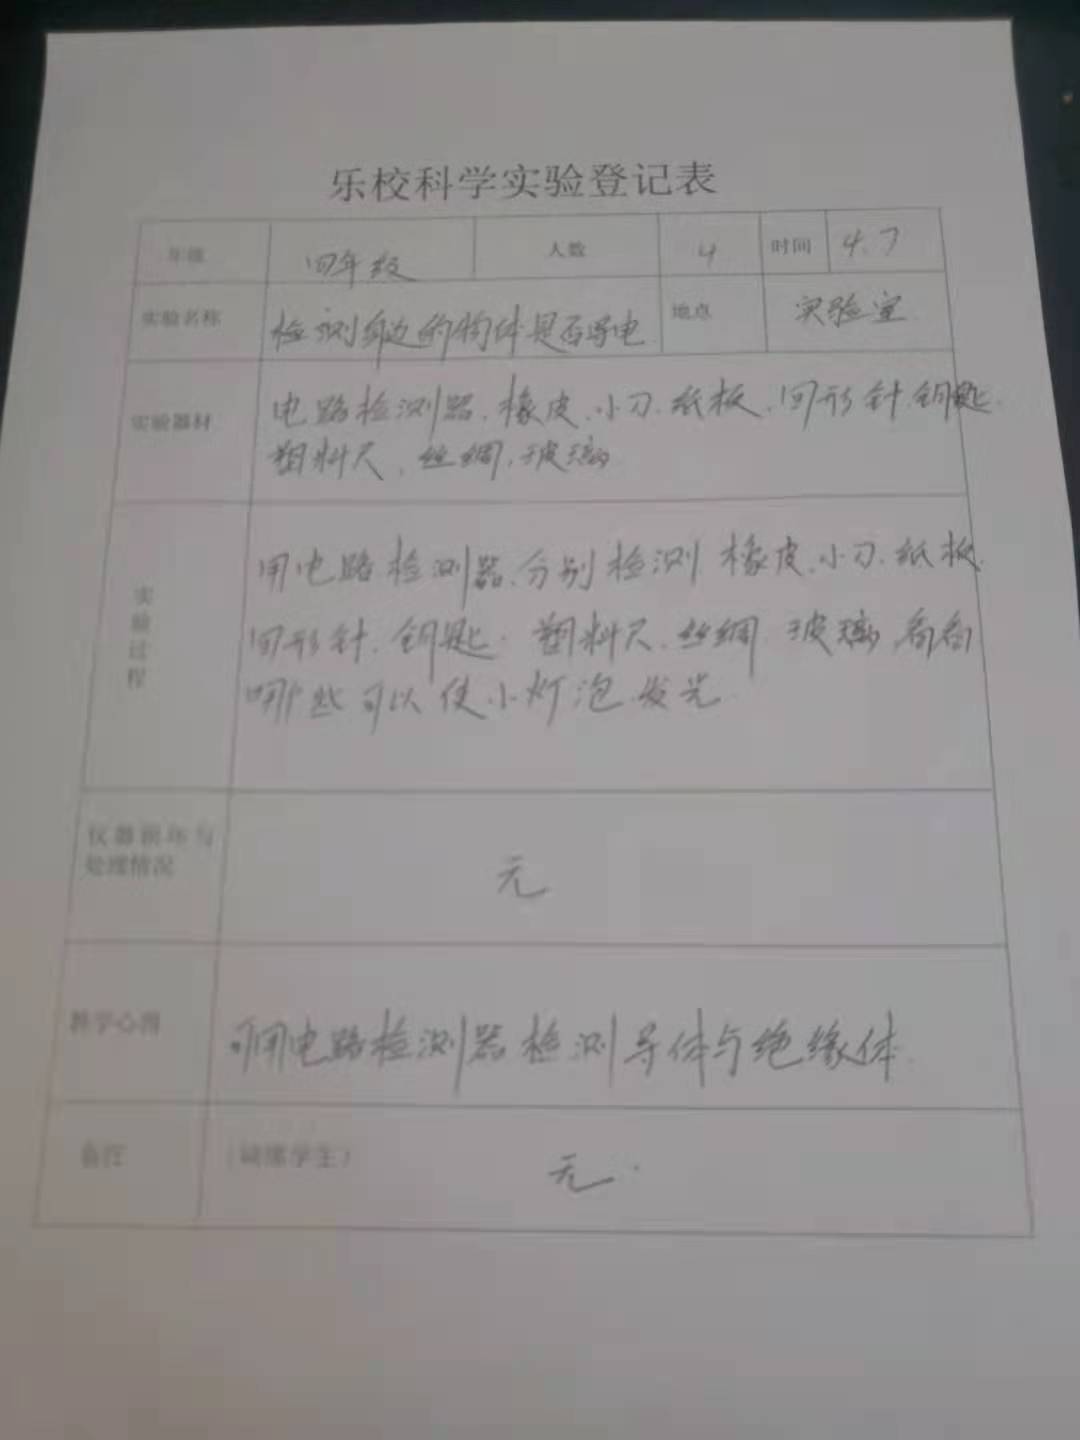 乐校科学实验登记表
年级 四年级 人数 4 时间 4.7
实验名称 检测身边的物体是否导电 地点 实验室
实验器材 电路检测器、橡皮、小刀、纸板、回形针、钥匙、
塑料尺、丝绸、玻璃
实验过程
用电路检测器、分别检测橡皮、小刀、纸板、
回形针、钥匙、塑料尺、丝绸、玻璃,看看
哪些可以使小灯泡发光.
仪器损坏与
处理情况
无
教学心得 可用电路检测器检测导体与绝缘体.
备注 (缺席学生) 无.